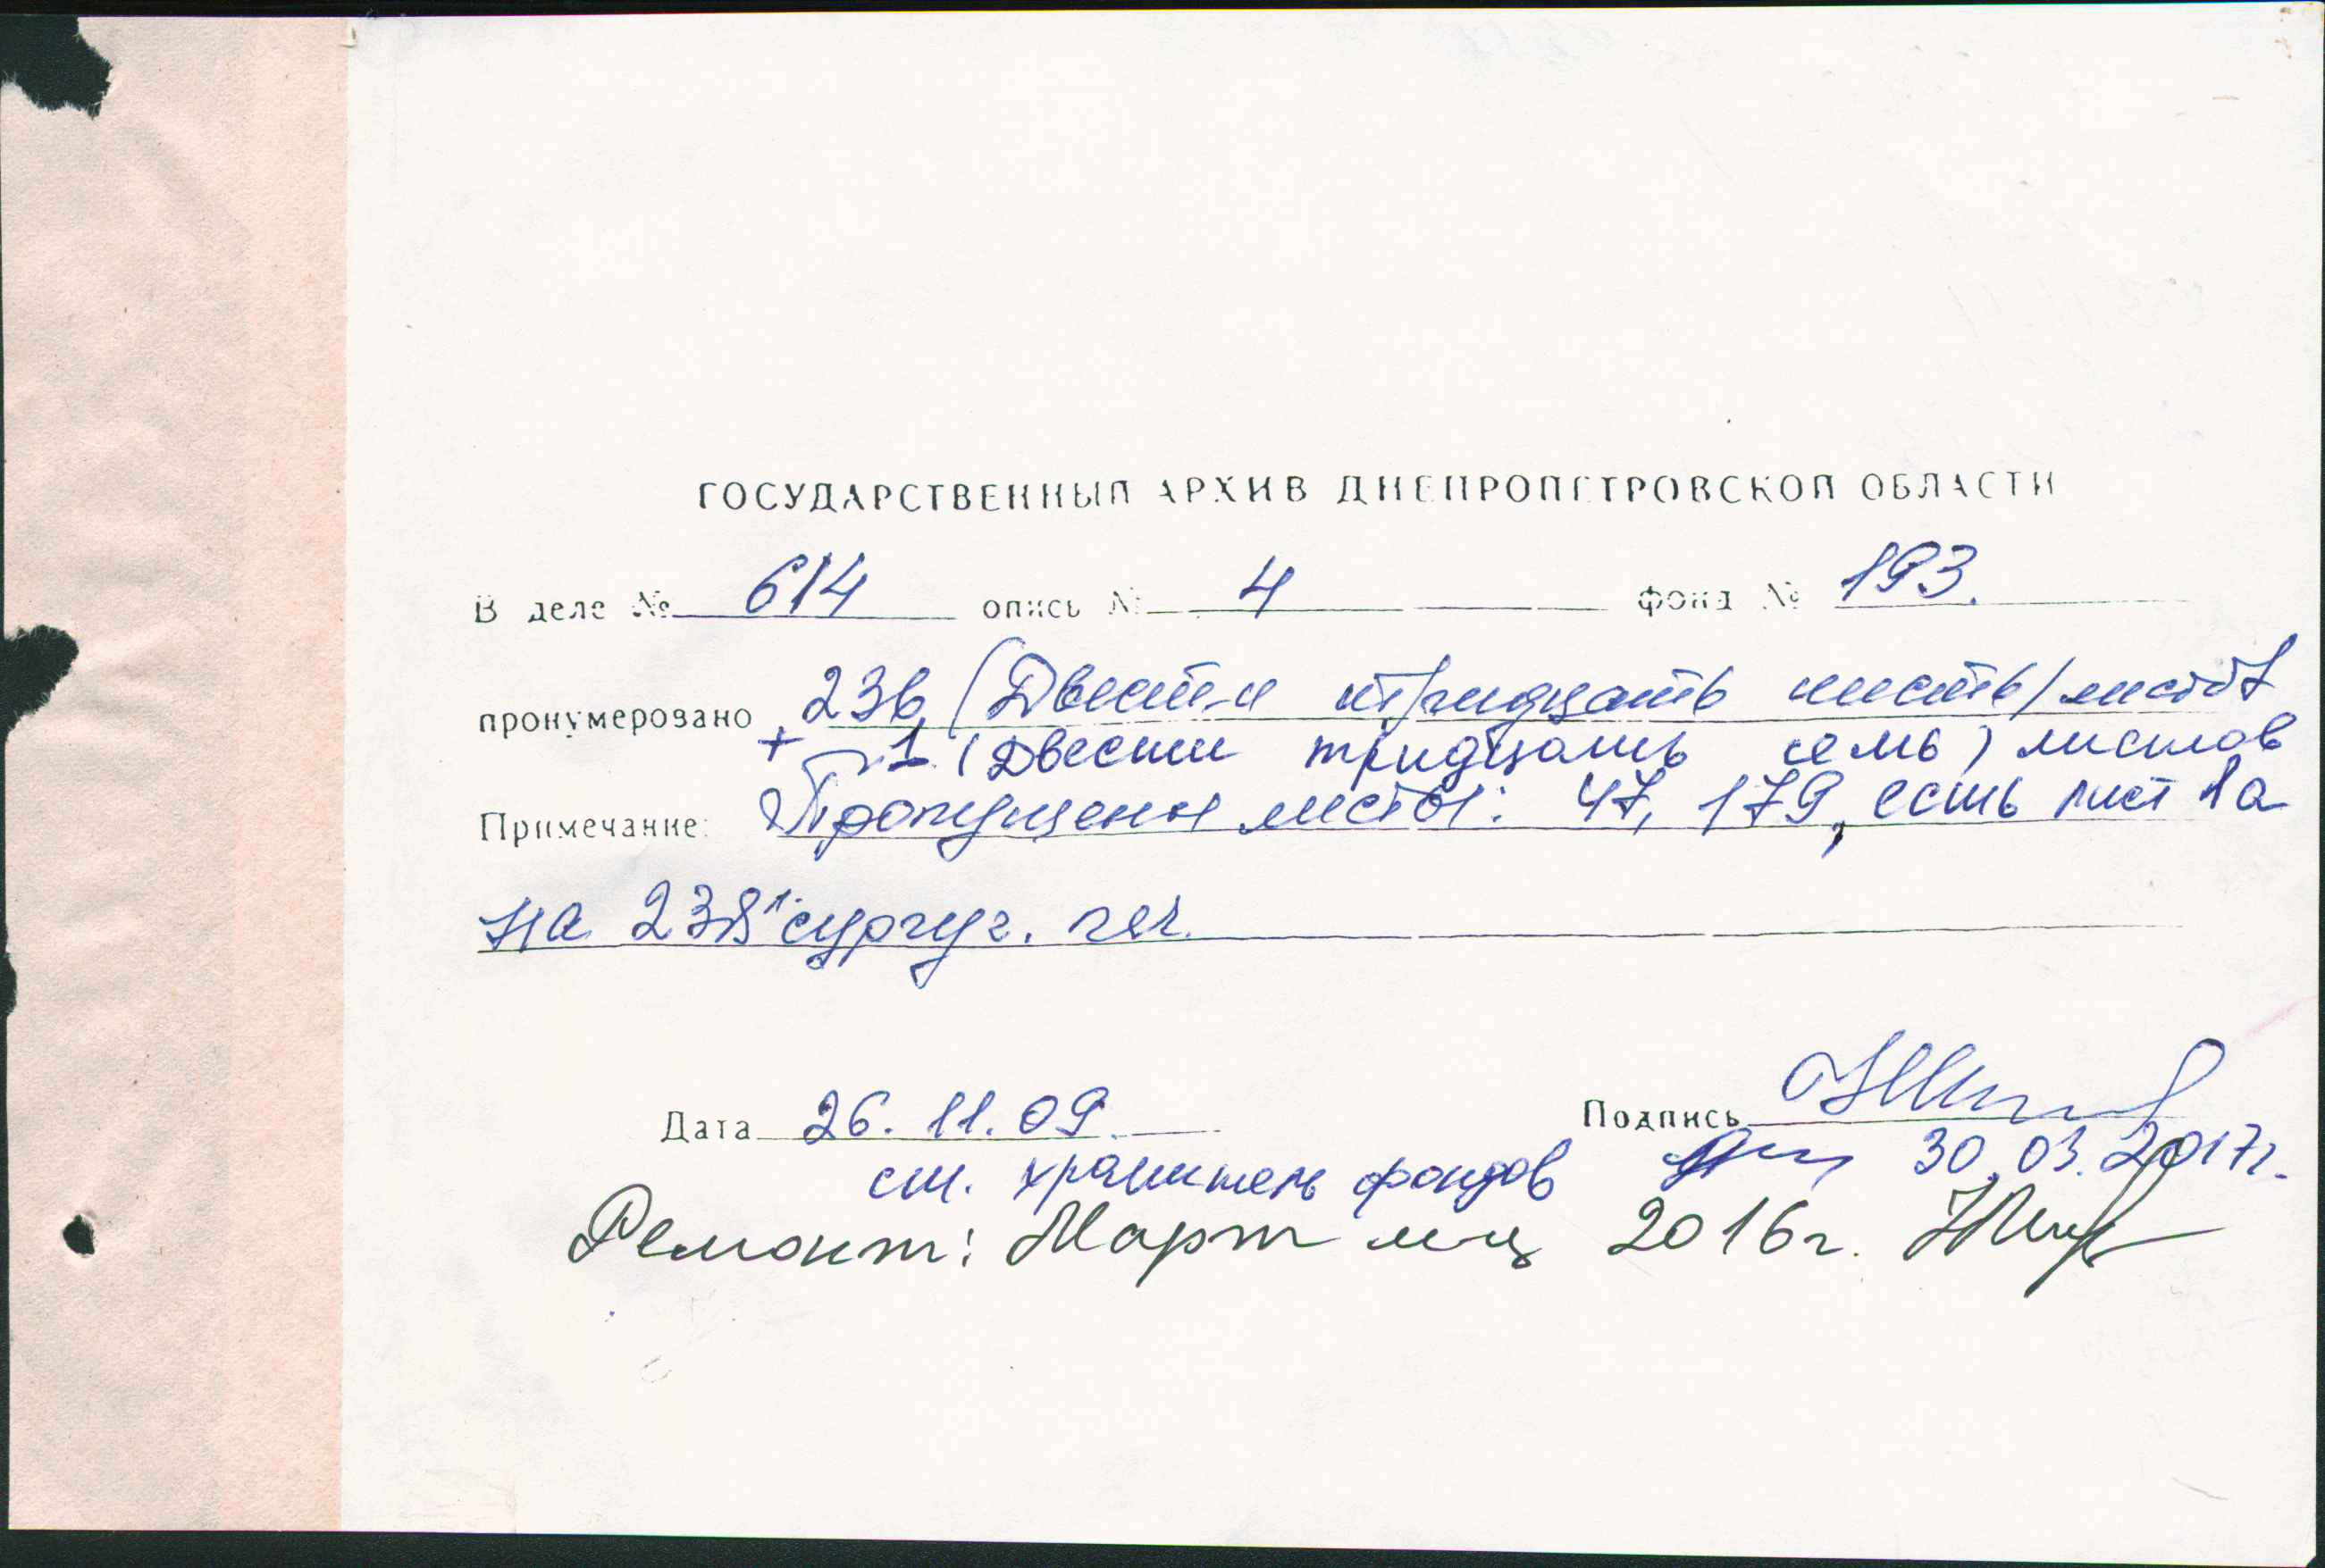 ГОСУДАРСТВЕННЫЙ АРХИВ ДНЕПРОПЕТРОВСКОЙ ОБЛАСТИ
В деле № 614 опись № 4 фонд № 193.
пронумеровано 236 (Двести тридцать шесть) листов
+ 1 (Двести тридцать семь) листов
Примечание: Пропущены листы: 47, 179, есть лист 1а
на 238 1 сургуч. печ.
Дата 26.11.09 Подпись
ст. хранитель фондов 30.03.2017г.
Ремонт: Март м-ц 2016г.